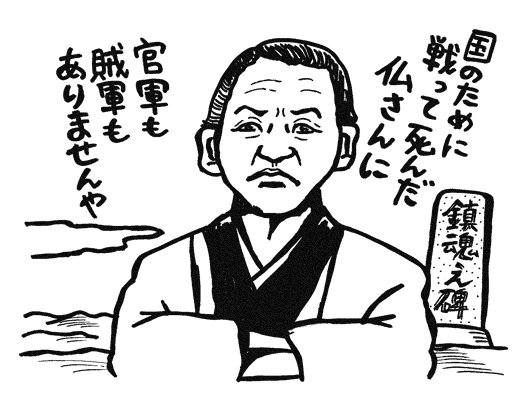 国のために
戦って死んだ
仏さんに
官軍も
賊軍も
ありませんや
鎮魂え碑